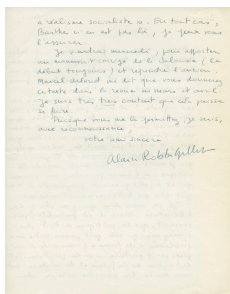 « réalisme socialiste ». En tout cas,
Barthes n'en est pas là, je peux vous
l'assurer.
Je viendrai mercredi, pour apporter
un manuscrit corrigé de la Jalousie (le
début toujours) et reprendre l'ancien.
Marcel Arland m'a dit que vous donniez
ce texte dans la revue en mars et avril.
Je suis très très content que cela puisse
se faire.
Puisque vous me le permettez, je suis,
avec reconnaissance,
votre ami sincère
Alain Robbe-Grillet